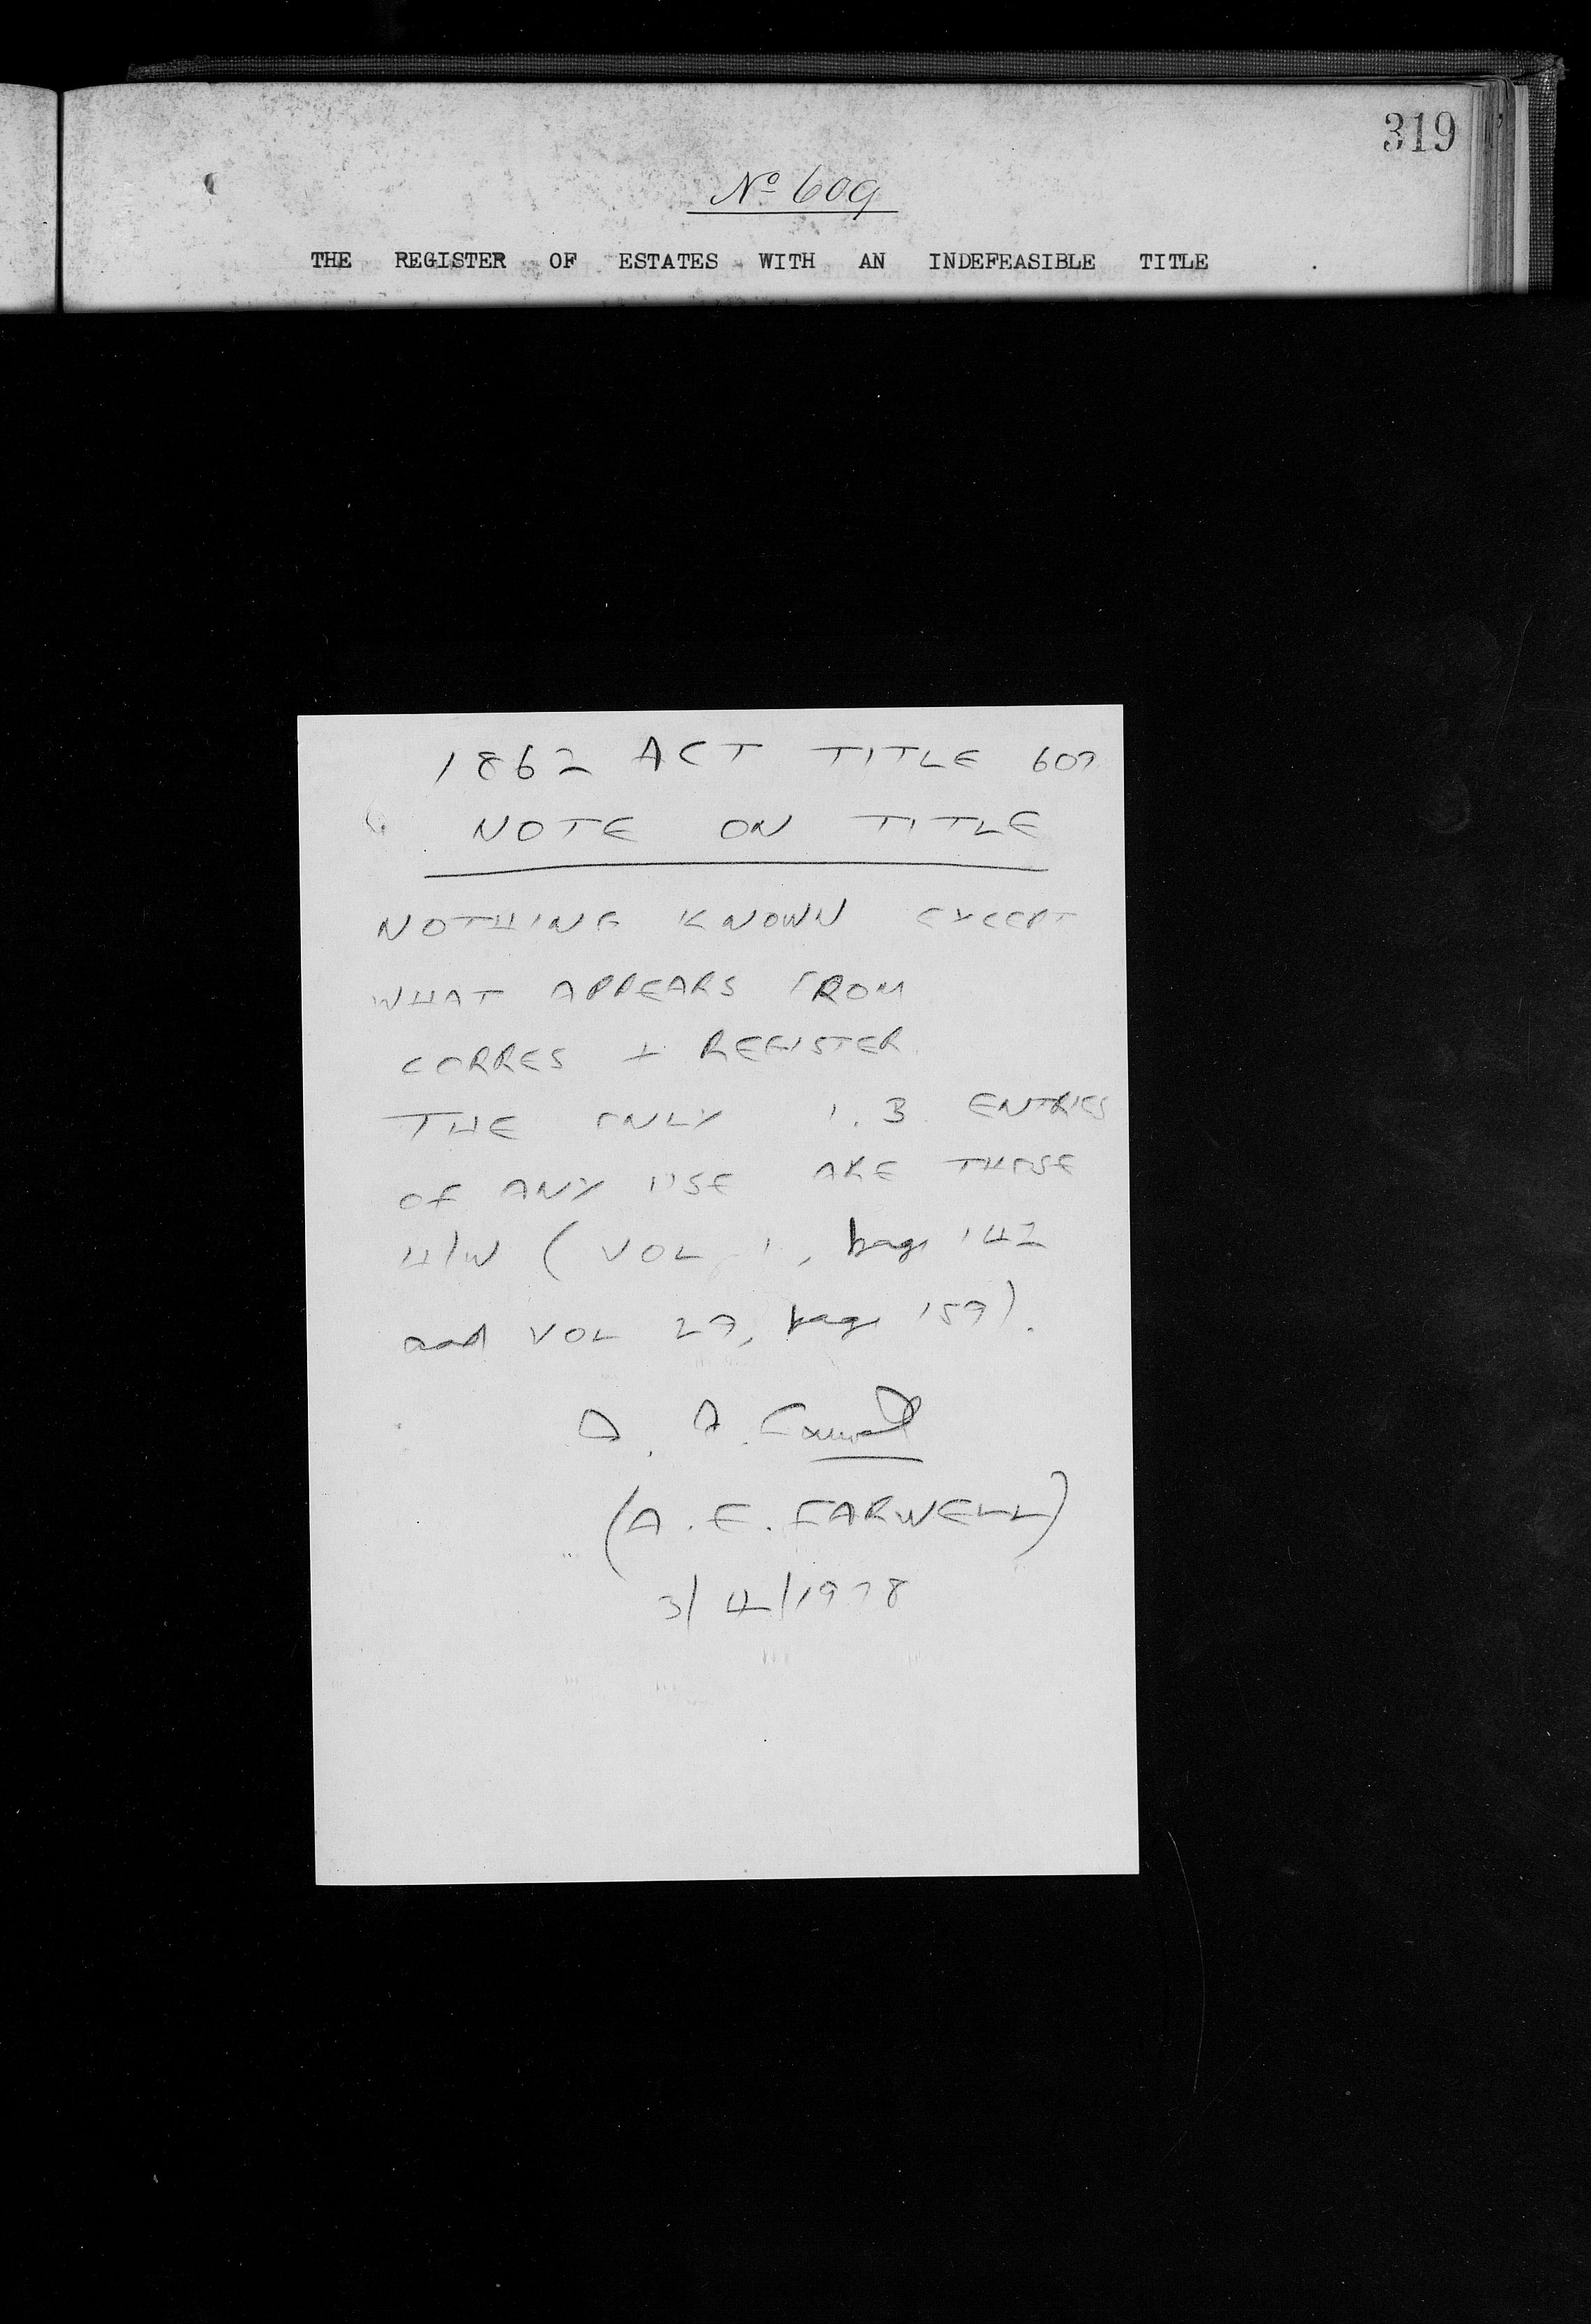 319
No 609
THE REGISTER OF ESTATES WITH AN INDEFEASIBLE TITLE
1862 ACT TITLE 609
NOTE ON TITLE
NOTHING KNOWN EXCEPT
WHAT APPEARS FROM
CORRES + REGISTER.
THE ONLY 1.3 ENTRIES
OF ANY USE ARE THOSE
H/W (VOL 1, page 142
and VOL 27, page 159).
(A. E. FARWELL)
3/4/1978